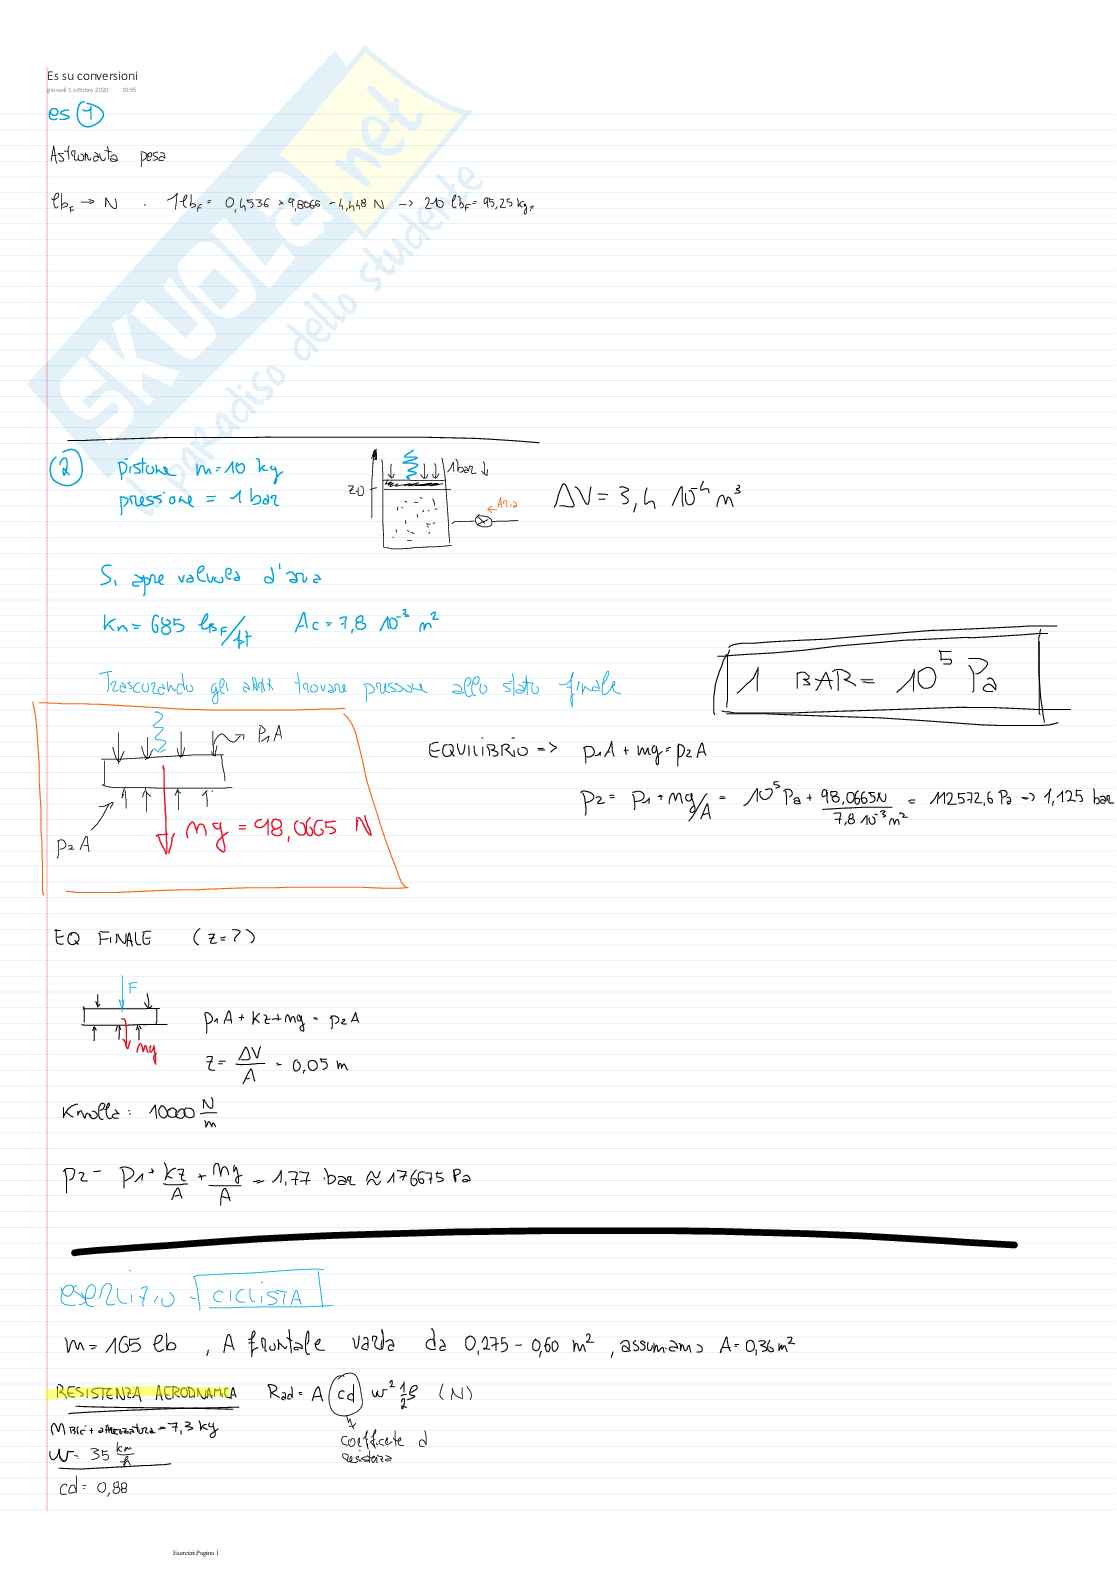 Es su conversioni
giovedì 1 ottobre 2020
es 1
Astronauta pesa
lbF → N . 1 lbF = 0,4536 × 9,8066 = 4,448 N → 210 lbF = 95,25 kgF
SKUOLA.net
il paradiso dello studente
2 pistone m=10 kg
pressione = 1 bar
z0
1 bar ↓
← Aria
ΔV = 3,4 10⁻⁴ m³
Si apre valvola d'aria
Km = 685 lbF/ft Ac = 7,8 10⁻³ m²
Trascurando gli attriti trovare pressione allo stato finale
1 BAR = 10⁵ Pa
P1A
P2A
mg = 98,0665 N
EQUILIBRIO => p1A + mg = p2A
p2 = p1 + mg/A = 10⁵ Pa + 98,0665N / 7,8 10⁻³ m² = 112572,6 Pa → 1,125 bar
EQ FINALE (z=?)
F
mg
p1A + kz + mg = p2A
z = ΔV/A = 0,05 m
Kmolla: 10000 N/m
p2 = p1 + kz/A + mg/A = 1,77 bar ≈ 176675 Pa
esercizio - CICLISTA
m = 165 lb , A frontale varia da 0,275 - 0,60 m² , assumiamo A = 0,36 m²
RESISTENZA AERODINAMICA Rad = A cd w² 1/2 ρ (N)
M Bici + attrezzatura = 7,3 kg
w = 35 km/h
coefficiente di
resistenza
cd = 0,88
Esercizi Pagina 1